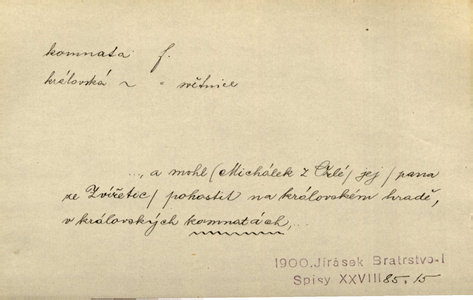 komnata f.
královská ~ = světnice
..., a mohl /Michálek z Vlé/ jej /pana
ze Zvířetic/ pohostit na královském hradě,
v královských komnatách,...
1900. Jirásek Bratrstvo-I
Spisy XXVIII 85.15